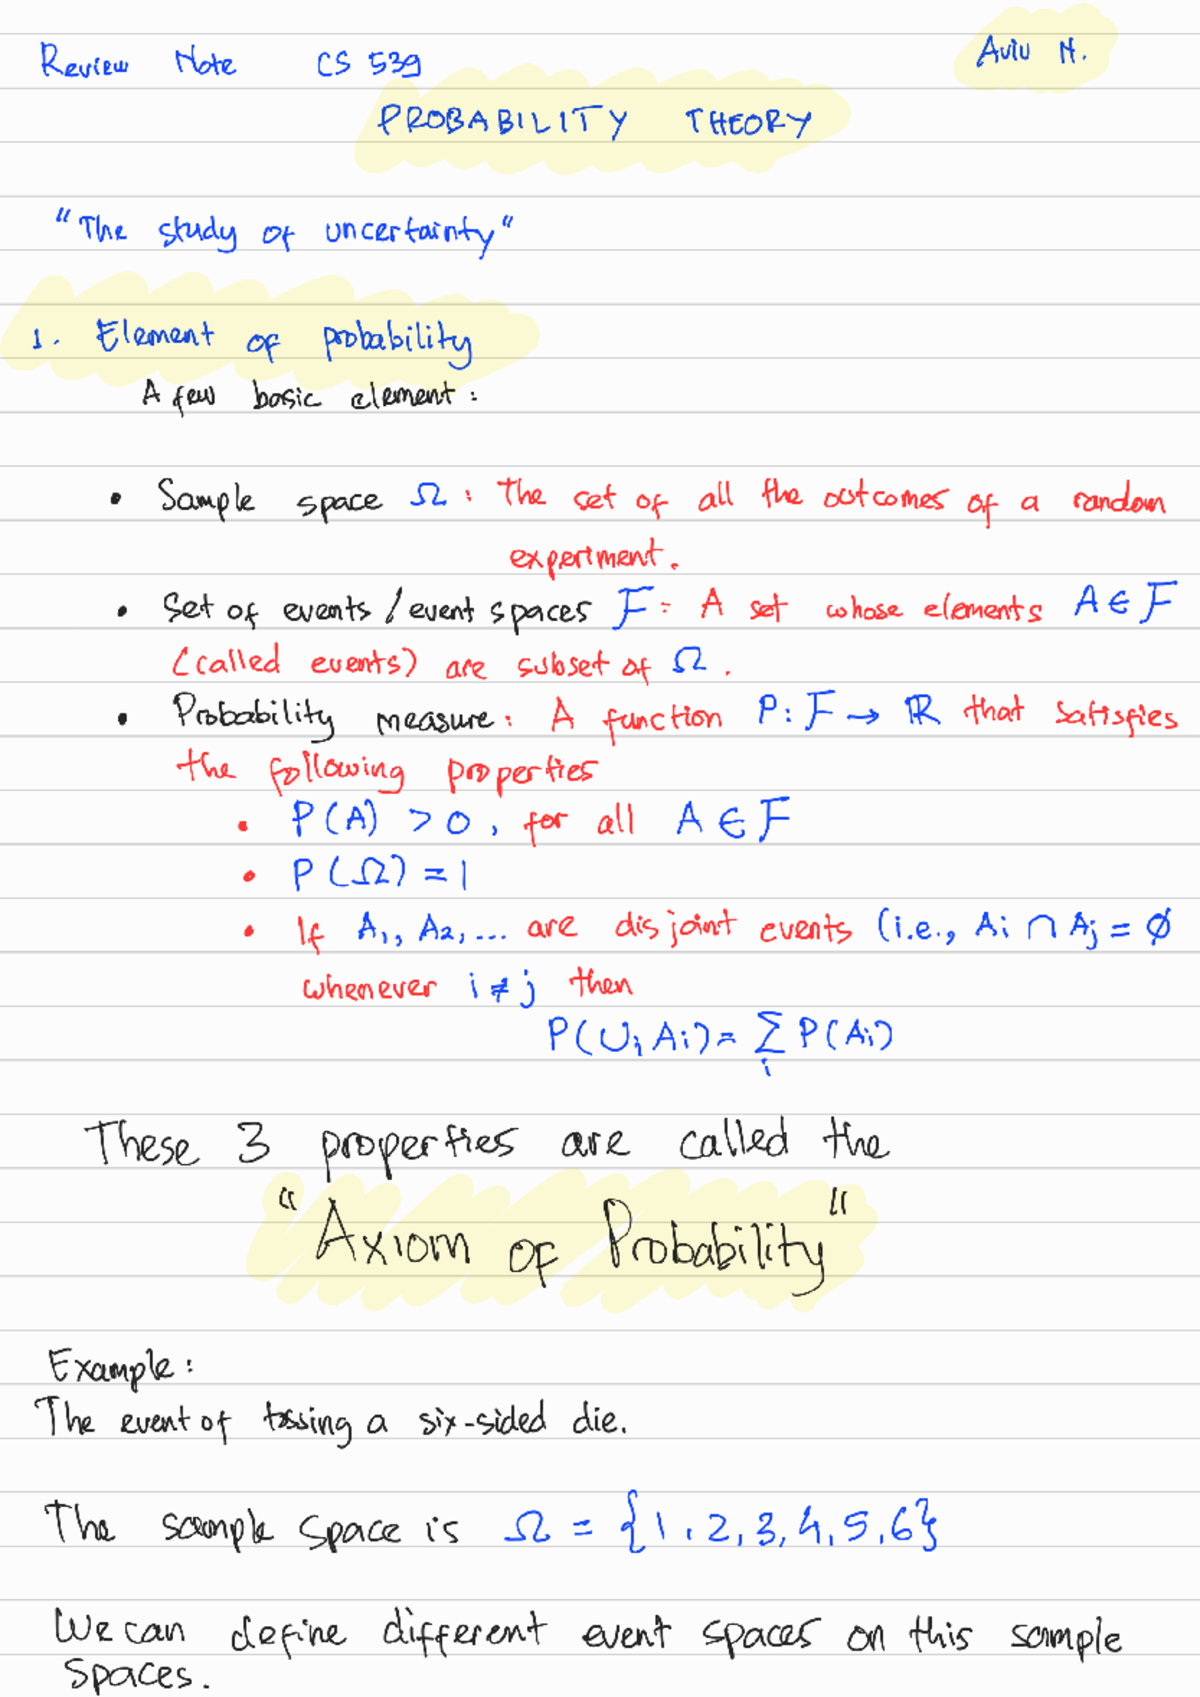 Review Note CS 539
Aviu N.
PROBABILITY THEORY
"The study of uncertainty"
1. Element of probability
A few basic element :
• Sample space Ω : The set of all the outcomes of a random
experiment.
• Set of events / event spaces F : A set whose elements A ∈ F
(called events) are subset of Ω .
• Probability measure : A function P : F → ℝ that satisfies
the following properties
• P(A) > 0 , for all A ∈ F
• P(Ω) = 1
• If A₁, A₂, ... are disjoint events (i.e., Ai ∩ Aj = ∅
whenever i ≠ j then
P(∪i Ai) = ∑i P(Ai)
These 3 properties are called the
"Axiom of Probability"
Example :
The event of tossing a six-sided die.
The sample space is Ω = {1, 2, 3, 4, 5, 6}
We can define different event spaces on this sample
spaces.